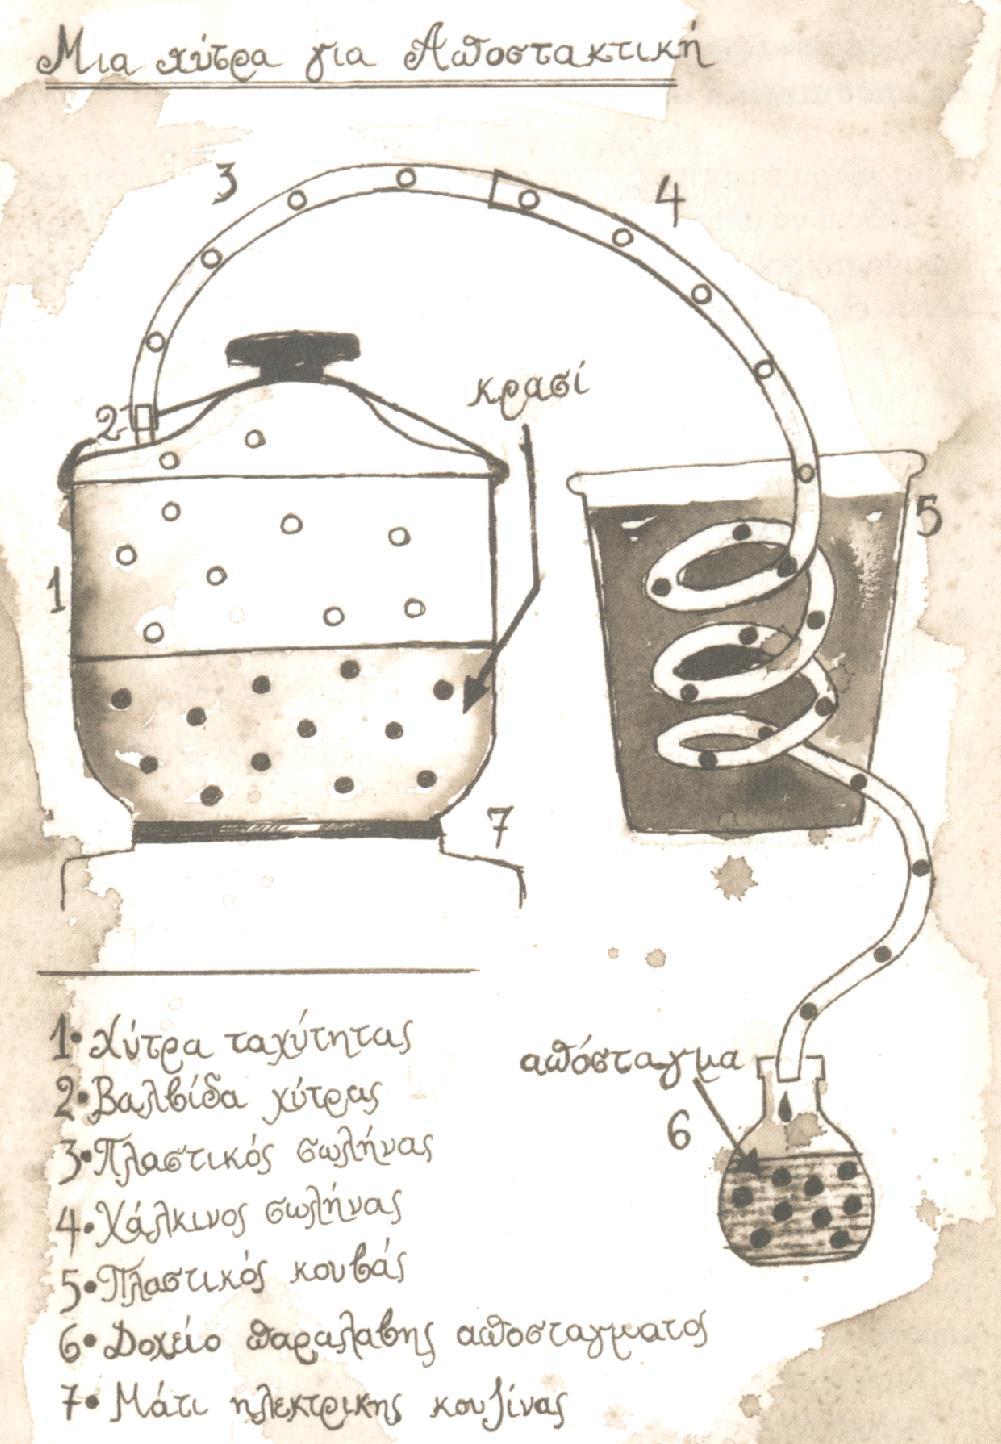 Μια χύτρα για Αποστακτική
3
4
2
κρασί
5
1
7
1• Χύτρα ταχύτητας
2• Βαλβίδα χύτρας
3• Πλαστικός σωλήνας
4• Χάλκινος σωλήνας
5• Πλαστικός κουβάς
6• Δοχείο παραλαβης αποσταγματος
7• Μάτι ηλεκτρικης κουζίνας
απόσταγμα
6